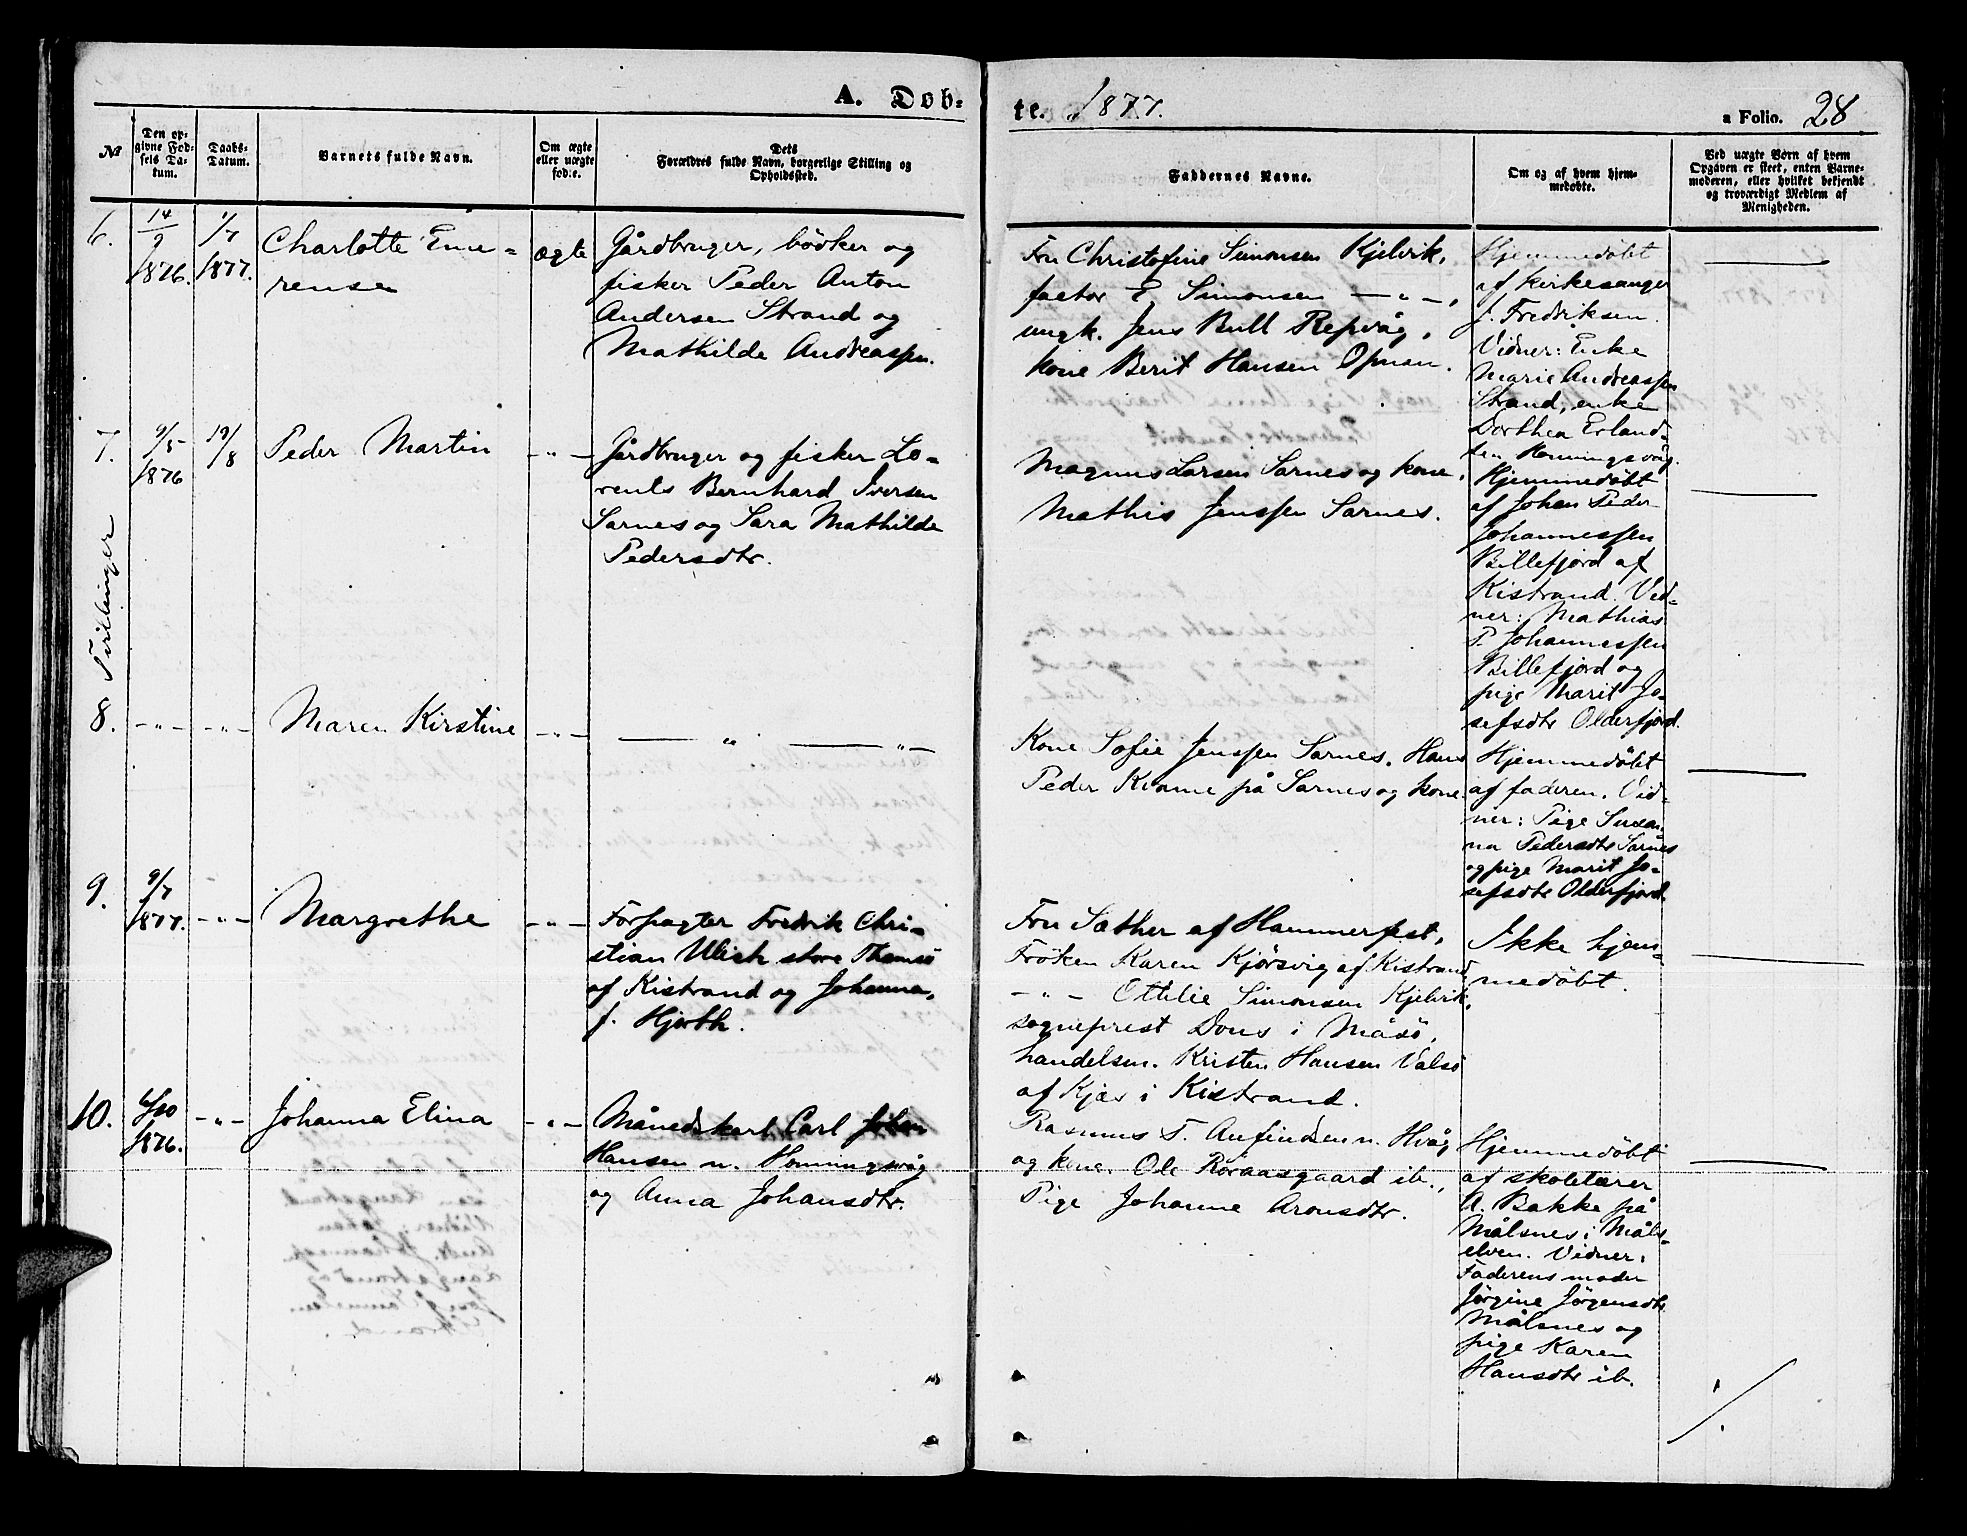 A. Dob-
te. 1877.
a Folio. 28
№
Den op-
givne Fød-
sels Da-
tum.
Daabs-
Datum.
Barnets fulde Navn.
Om ægte
eller uægte
født.
Dets
Forældres fulde Navn, borgerlige Stilling og
Opholdssted.
Faddernes Navne.
Om og af hvem hjem-
medøbte.
Ved uægte Børn af hvem
Opgaven er skeet, enten Barne-
moderen, eller hvilket bekjendt
og troværdigt Medlem af
Menigheden.
6.
14/9
1876.
1/7
1877.
Charlotte Eme-
rense
ægte
Gårdbruger, bödker og
fisker Peder Anton
Andersen Strand og
Mathilde Andreassen.
Fru Christofine Simonsen Kjelvik,
factor E. Simonsen — „ —,
ungk. Jens Bull Repvåg,
kone Berit Hansen Opnan.
Hjemmedöbt
af kirkesanger
J. Fredriksen.
Vidner: Enke
Marie Andreassen
Strand, enke
Dorthea Erland-
sen Honningsvåg.
7.
9/5
1876
19/8
Peder Martin
— „ —
Gårdbruger og fisker Lo-
rents Bernhard Iversen
Sarnes og Sara Mathilde
Pedersdtr.
Magnus Larsen Sarnes og kone,
Mathis Jenssen Sarnes.
Hjemmedöbt
af Johan Peder
Johannessen
Billefjord af
Kistrand. Vid-
ner: Mathias
P. Johannessen
Billefjord og
pige Marit Jo-
sefsdtr Olderfjord.
Tvillinger
8.
— „ —
— „ —
Maren Kirstine
— „ —
— „ — „ —
Kone Sofie Jenssen Sarnes. Hans
Peder Kvame på Sarnes og kone.
Hjemmedöbt
af faderen. Vid-
ner: Pige Susan-
na Pedersdtr Sarnes
og pige Marit Jo-
sefsdtr Olderfjord.
9.
9/7
1877.
— „ —
Margrethe
— „ —
Forpagter Fredrik Chri-
stian Ulich store Thamsö
af Kistrand og Johanna,
f. Hjorth.
Fru Sæther af Hammerfest,
Fröken Karen Kjörsvig af Kistrand
— „ — Ottilie Simonsen Kjelvik,
sogneprest Dons i Måsö,
handelsm. Kristen Hansen Valsö
af Kjæs i Kistrand.
Ikke hjem-
medöbt.
10.
6/10
1876.
— „ —
Johanna Elina
— „ —
Månedskarl Carl Johan
Hansen n. Honningsvåg
og Anna Johansdtr.
Rasmus T. Anfindsen n. Hvåg
og kone. Ole Roraasgaard ib.,
Pige Johanne Aronsdtr.
Hjemmedöbt
af skolelærer
A. Bakke på
Målsnes i Måls-
elven. Vidner:
Faderens moder
Jørgine Jørgensdtr
Målsnes og
pige Karen
Hansdtr ib.